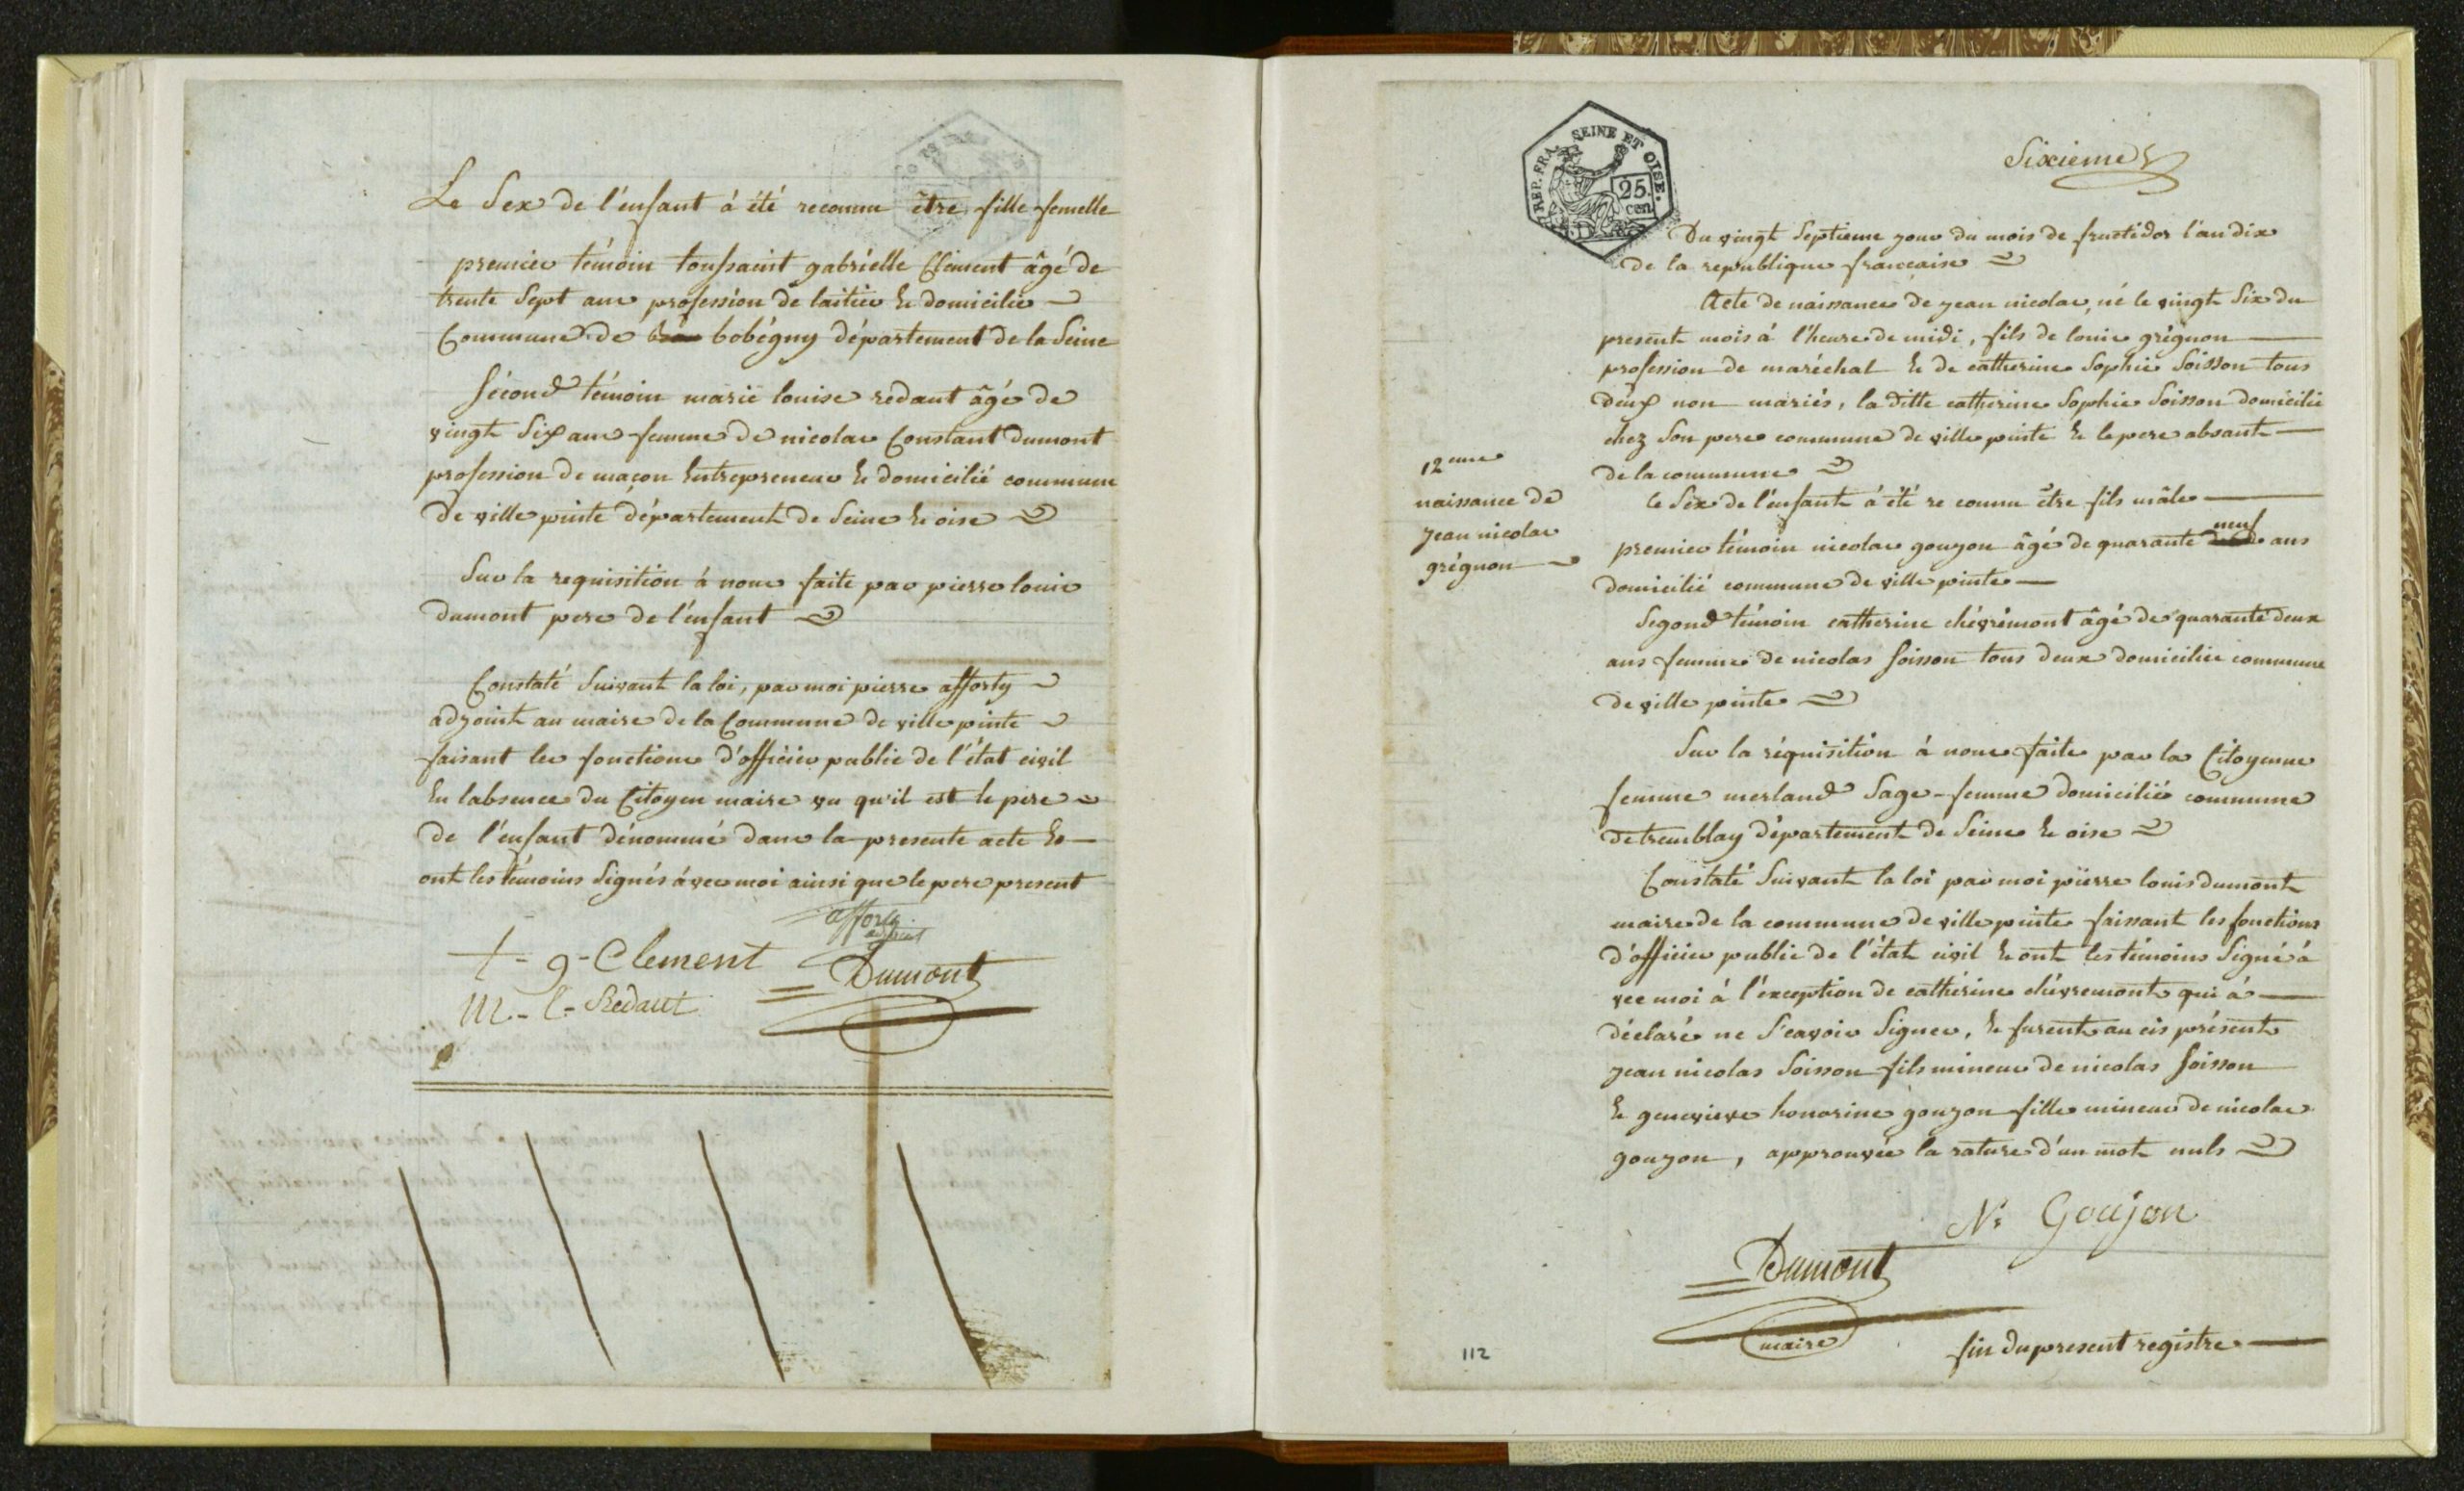 Le Sex de l'enfant à été reconnu être fille femelle
premier témoin toussaint gabriélle Clement âgé de
trente Sept ans profession de laitier & domicilié
Commune de bobégny département de la Seine
Sécond témoin marie louise redaut âgé de
vingt Six ans femme de nicolas Constant dumont
profession de maçon Entrepreneur & domicilié commune
de ville pinte département de Seine & oise
Sur la requisition à nous faite par pierre louis
dumont pere de l'enfant
Constaté Suivant la loi, par moi pierre afforty
adjoint au maire de la Commune de ville pinte
faisant les fonctions d'officier public de l'état civil
En labsence du Citoyen maire vu qu'il est le pere
de l'enfant dénommé dans la presente acte &
ont les témoins Signés àvec moi ainsi que le pere present
afforty
adjoint
t-g-Clement
Dumont
m.-l-Redaut
REP. FRA. SEINE ET OISE.
25.
cen.
Sixieme
Du vingt Septieme jour du mois de fructidor l'an dix
de la republique francaise
Acte de naissance de jean nicolas, né le vingt Six du
present mois à l'heure de midi, fils de louis grégnon
profession de maréchal & de catherine Sophie Soisson tous
deux non mariés, la ditte catherine Sophie Soisson domicilié
chez Son pere commune de ville pinte & le pere absant
de la commune
12eme
naissance de
jean nicolas
grégnon
le Sex de l'enfant à été re connu être fils mâle
premier témoin nicolas goujon âgé de quarante neuf ans
domicilié commune de ville pinte
Segond témoin catherine chévrémont âgé de quarante deux
ans femme de nicolas soisson tous deux domiciliés commune
de ville pinte
Sur la réquisition à nous faite par la Citoyenne
femme merland Sage-femme domicilié commune
de tremblay département de Seine & oise
Constaté Suivant la loi par moi pierre louis dumont
maire de la commune de ville pinte faissant les fonctions
d'officier public de l'état civil & ont les témoins Signé à
vec moi à l'exception de cathérine chévremont qui à
déclaré ne S'cavoir Signer, & furent au cis présent
jean nicolas Soisson fils mineur de nicolas soisson
& genevieve honorine goujon fille mineur de nicolas
goujon, approuvée la rature d'un mot nuls
N: Goujon
Dumont
maire
fin du present registre
112